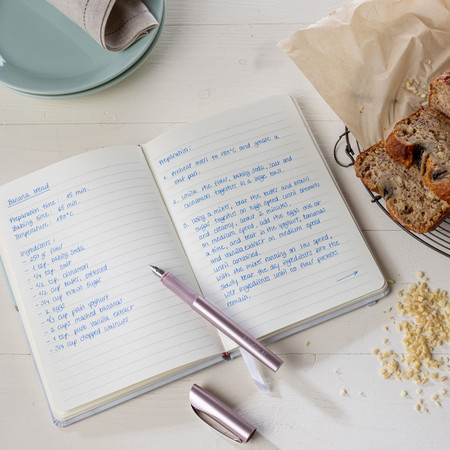 Banana bread
Preparation time: 15 min.
Baking time: 65 min.
Temperature: 180°C
Ingredients:
- 250 gr flour
- 1 tsp. baking soda
- 1/4 tsp. salt
- 1/2 cup butter, softened
- 3/4 cup brown sugar
- 2 eggs
- 1/3 cup plain yoghurt
- 2 cups mashed bananas
- 1 tsp. pure vanilla extract
- 3/4 cup chopped walnuts
Preparation:
1. Preheat oven to 180°C and grease a
loaf pan.
2. Whisk the flour, baking soda, salt and
cinnamon together in a large bowl.
3. Using a mixer, beat the butter and brown
sugar together on high speed until smooth
and creamy, about 2 minutes.
on medium speed, add the eggs one at
a time, and beat in the yoghurt, bananas
and vanilla extract on medium speed
until combined.
With the mixer running on low speed,
slowly beat the dry ingredients into the
wet ingredients until no flour pockets
remain.